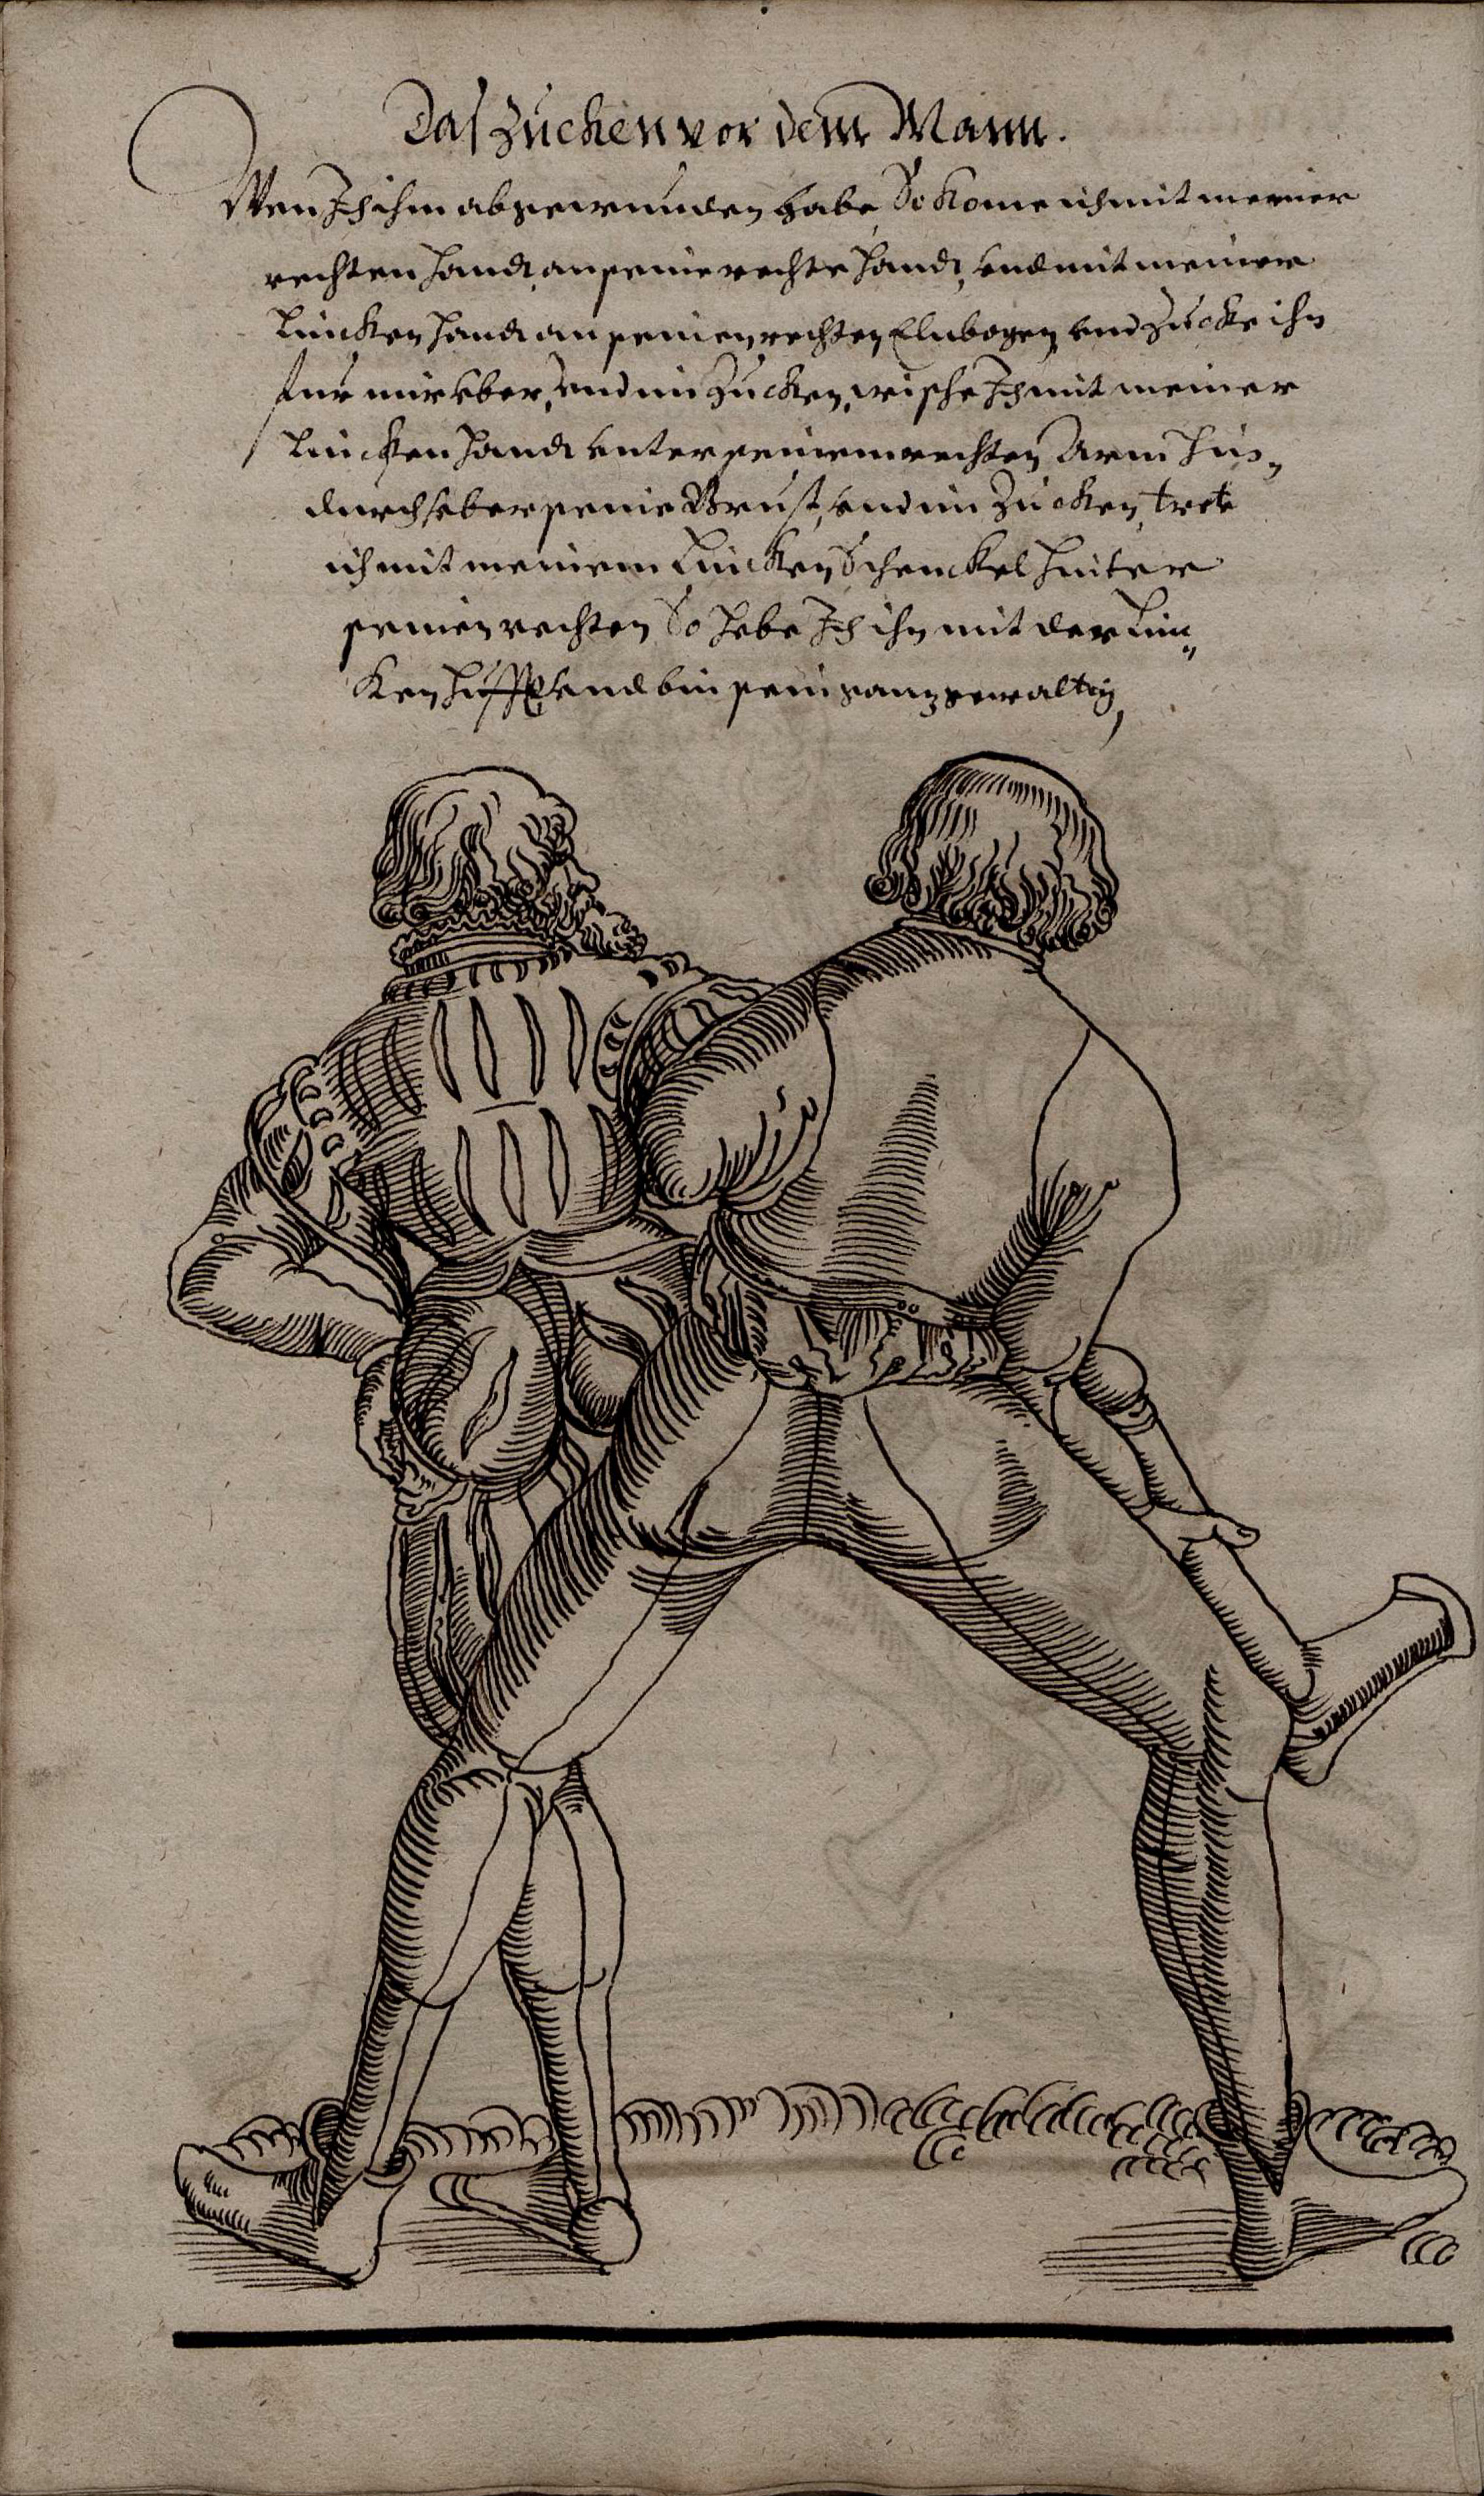 Das Zucken vor dem Mann.
Wen Ich ihm abgewunden habe, So Kome ich mit meiner
rechten Handt, an seine rechte Handt, vnd mit meiner
Lincken Handt an seinen rechten Elnbogen, vnd Zucke ihn
fur mir vber, vnd im Zucken, wische Ich mit meiner
Lincken Handt vnter seinem rechten Arm hin„
durch vber seine Brust, vnd im Zucken, trete
ich mit meinem Lincken Schenckel hinter
seinen rechten, So hebe Ich ihn mit der Lin„
Ken Hufft, vnd bin sein gantz gewaltig,